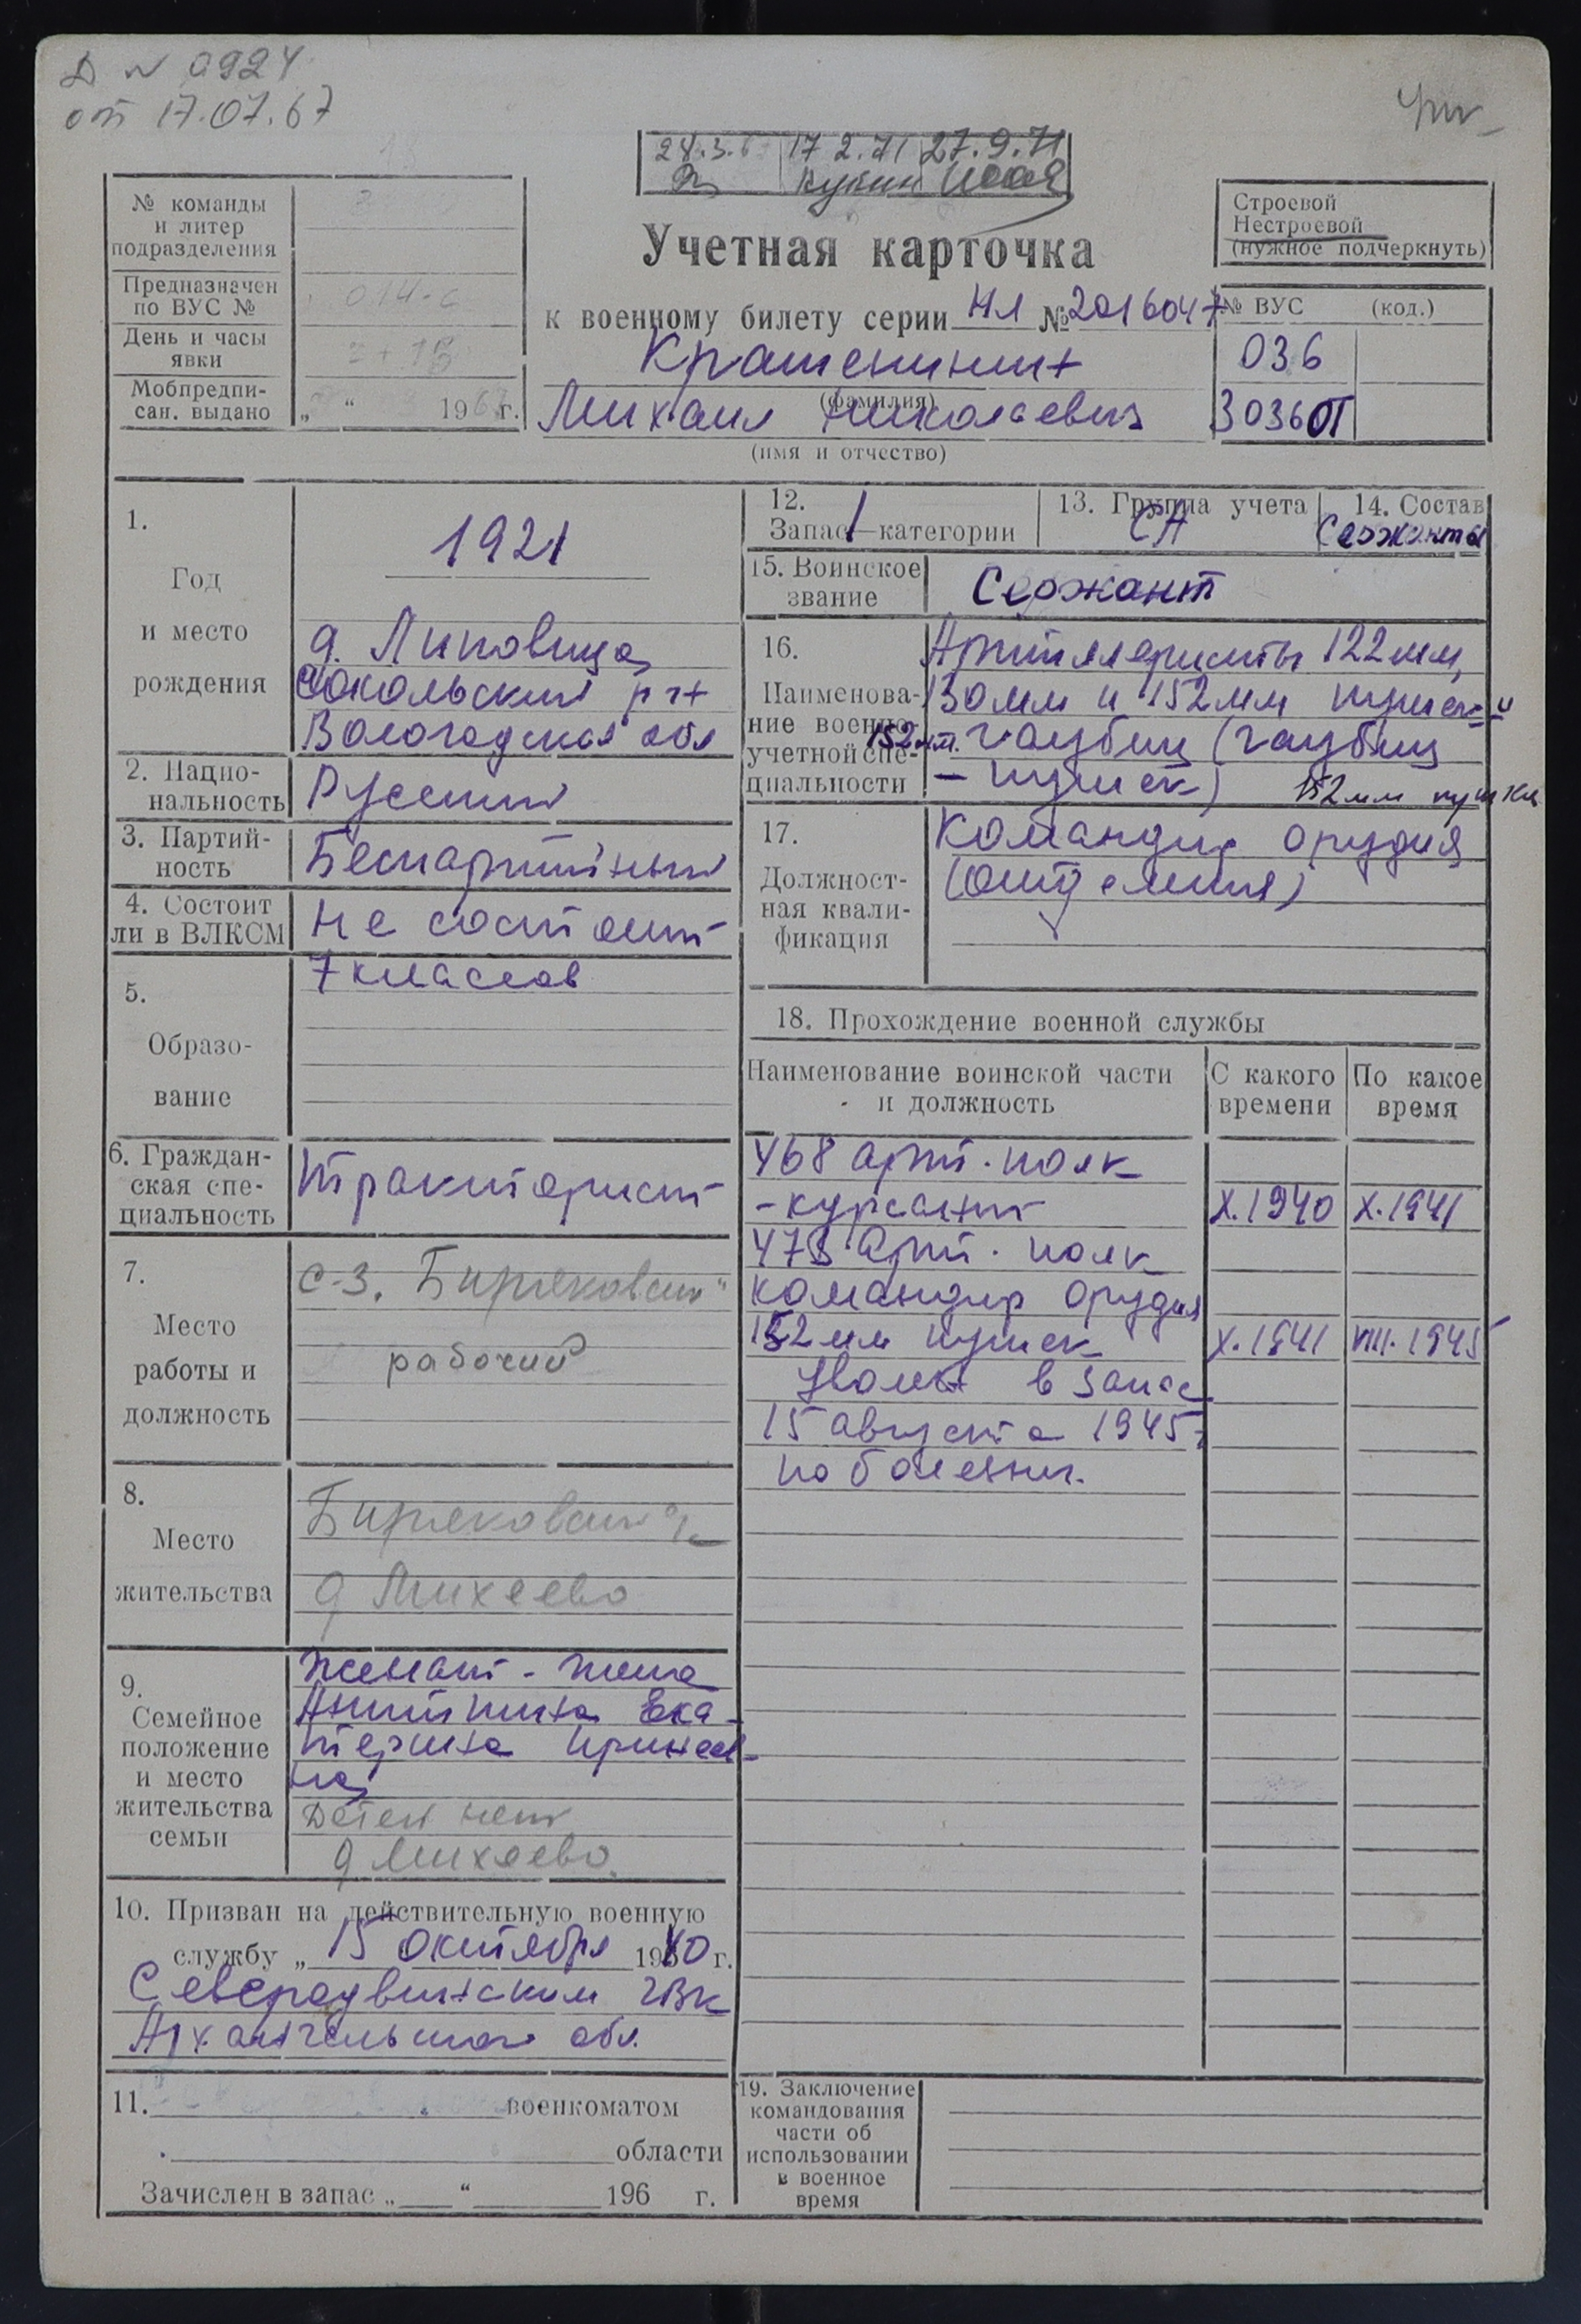 Д № 0924
от 17.07.67
17.2.71 27.9.71
№ команды
и литер
подразделения
Предназначен
по ВУС №
014-с
День и часы
явки
Мобпредпи-
сан. выдано
„ “ 196 г.
Учетная карточка
к военному билету серии НЛ № 2016047
Крашенинин
(фамилия)
Михаил Николаевич
(имя и отчество)
Строевой
Нестроевой
(нужное подчеркнуть)
№ ВУС (код.)
036
3036 ОТ
1.
Год
и место
рождения
1921
д. Липовица
Сокольский р-н
Вологодская обл
2. Нацио-
нальность
Русский
3. Партий-
ность
Беспартийный
4. Состоит
ли в ВЛКСМ
Не состоит
5.
Образо-
вание
7 классов
6. Граждан-
ская спе-
циальность
Тракторист
7.
Место
работы и
должность
с-з. Биряковский"
рабочий
8.
Место
жительства
Биряковский
д Михеево
9.
Семейное
положение
и место
жительства
семьи
Женат - жена
Екa-
терина
на
Детей нет
д Михеево.
10. Призван на действительную военную
службу „ 15 октября 1940 г.
Северодвинским ГВК
Архангельской обл.
11. военкоматом
области
Зачислен в запас „ “ 196 г.
12.
Запас 1 категории
13. Группа учета
СА
14. Состав
Сержанты
15. Воинское
звание
Сержант
16.
Наименова-
ние военно-
учетной спе-
циальности
Артиллеристы 122мм,
130мм и 152мм пушек и
152мм. гаубиц (гаубиц
- пушек) 152мм пушки
17.
Должност-
ная квали-
фикация
Командир орудия
(отделения)
18. Прохождение военной службы
Наименование воинской части
и должность
С какого
времени
По какое
время
468 арт. полк
- курсант X.1940 X.1941
473 арт. полк
командир орудия
152мм пушек X.1941 VIII.1945
Уволен в запас
15 августа 1945 г
по болезни.
19. Заключение
командования
части об
использовании
в военное
время